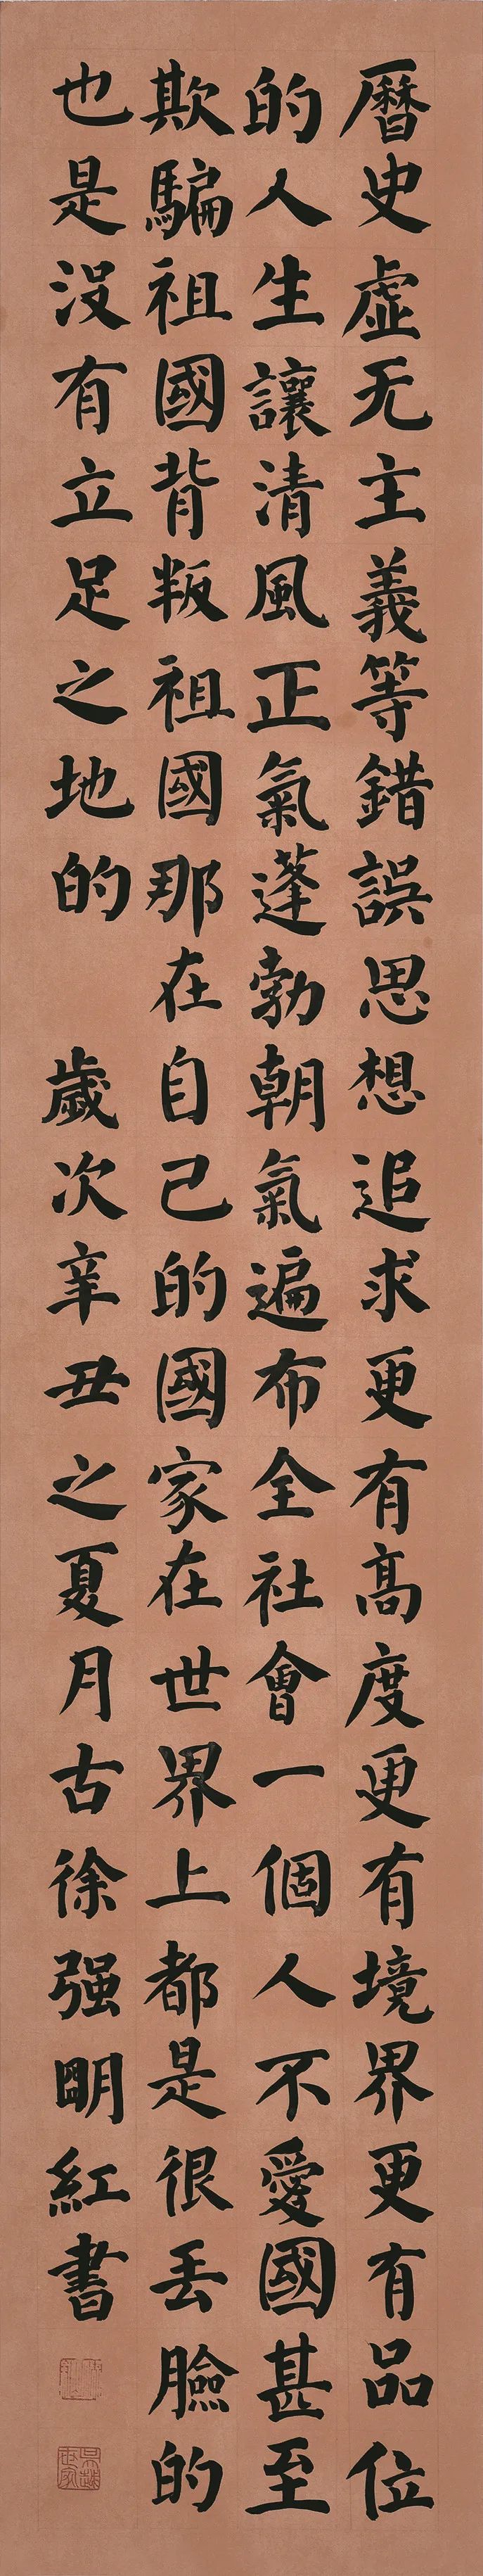 曆史虛无主義等錯誤思想追求更有高度更有境界更有品位
的人生讓清風正氣蓬勃朝氣遍布全社會一個人不愛國甚至
欺騙祖國背叛祖國那在自己的國家在世界上都是很丟臉的
也是沒有立足之地的 歲次辛丑之夏月古徐强明紅書